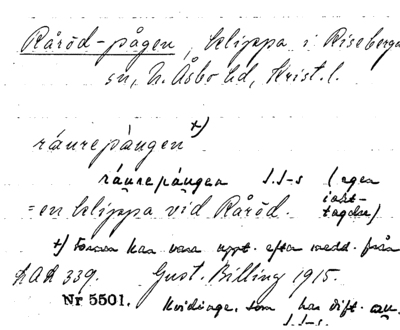 Råröd-pågen, klippa i Riseberga
sn, N. Åsbo hd, Krist. l.
+)
råurepången
råurepången s.s-s (egen
iakt-
= en klippa vid Råröd. tagelse)
+) Formen kan vara uppt. efter medd. från
LAA 339. Gust. Billing 1915.
Nr 5501. som har dift. au.
s.s-s.